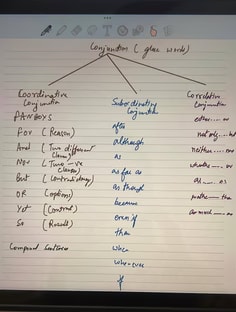 Conjunction (glue words)
Coordinative Conjunction
FANBOYS
For (Reason)
And (Two different clauses)
Nor (Two -ve clauses)
But (Contradictory)
OR (options)
Yet (Contrast)
So (Result)
Compound Sentences
Subordinative Conjunction
after
although
as
as far as
as though
because
even if
than
when
whenever
if
Correlative Conjunction
either.... or
not only... but
neither... nor
whether... or
as .... as
rather... than
as much... as